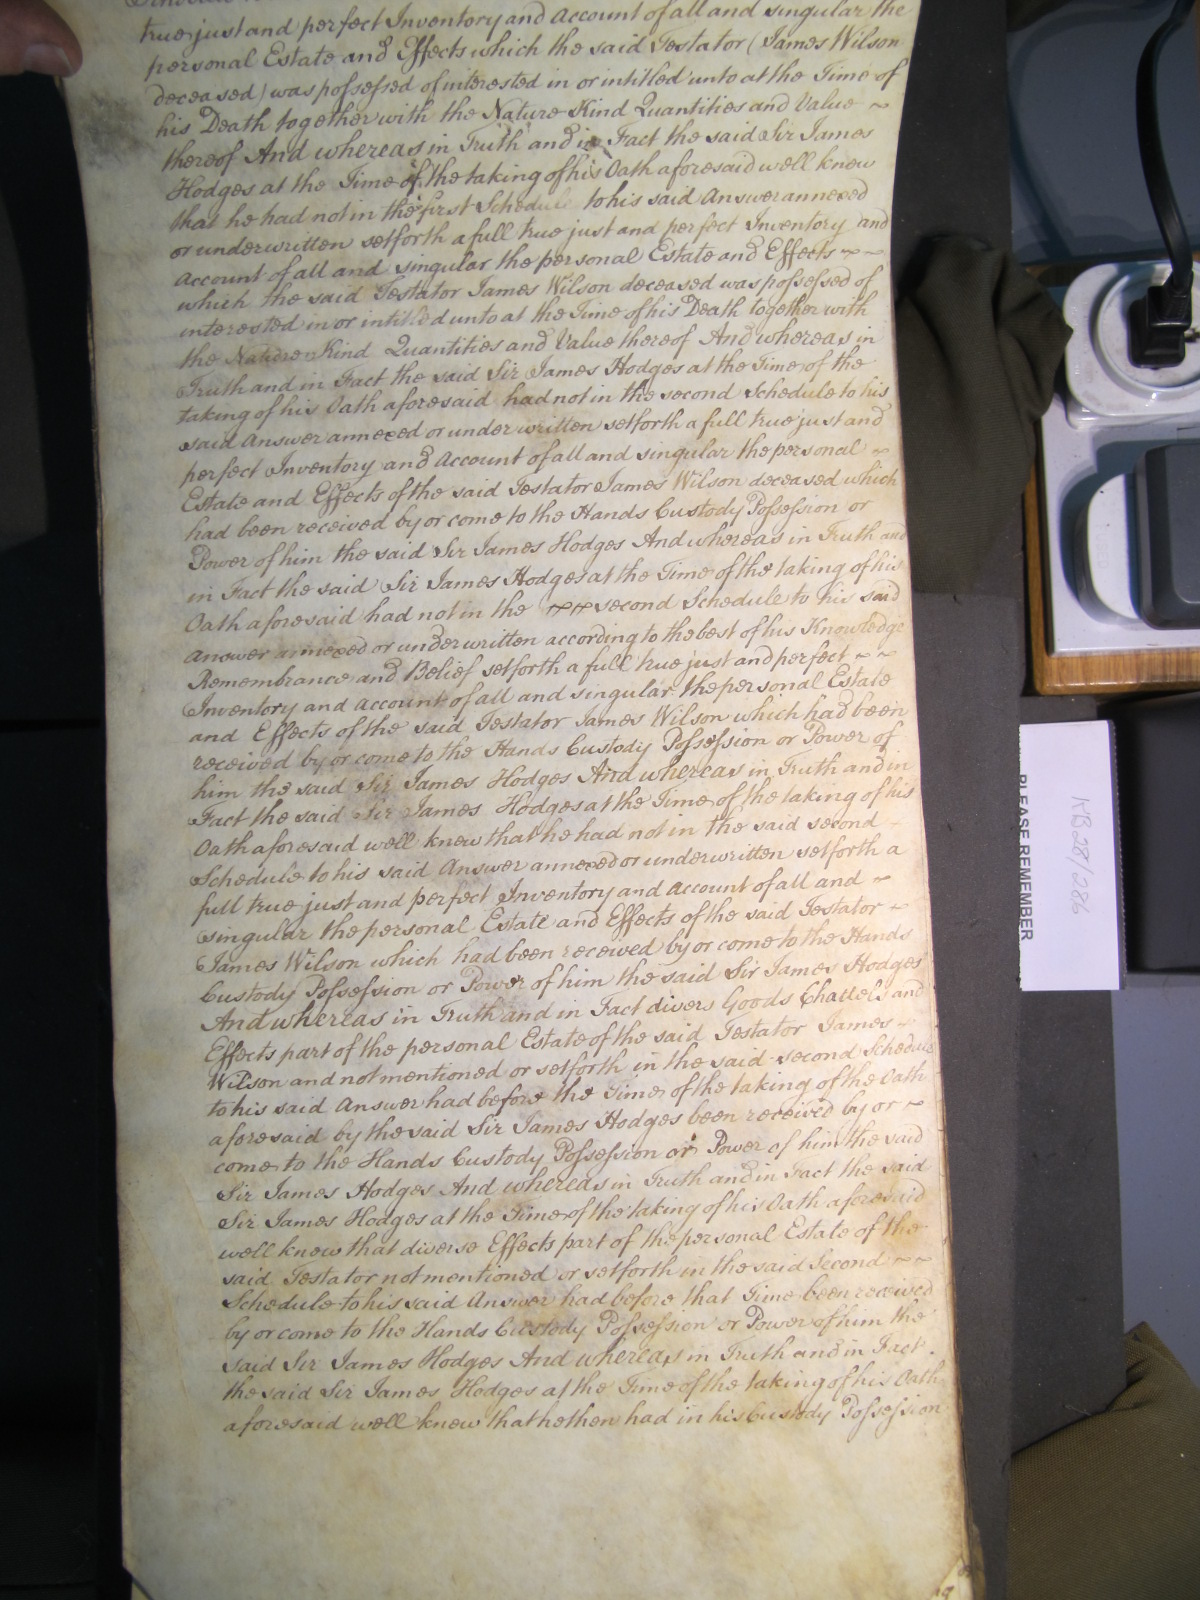 true just and perfect Inventory and Account of all and singular the
personal Estate and Effects which the said Testator (James Wilson
deceased) was possessed of interested in or intitled unto at the Time of
his Death together with the Nature Kind Quantities and Value ~
thereof And whereas in Truth and in Fact the said Sir James
Hodges at the Time of the taking of his Oath aforesaid well knew
that he had not in the first Schedule to his said Answer annexed
or underwritten setforth a full true just and perfect Inventory and
Account of all and singular the personal Estate and Effects ~ ~
which the said Testator James Wilson deceased was possessed of
interested in or intitled unto at the Time of his Death together with
the Nature Kind Quantities and Value thereof And whereas in
Truth and in Fact the said Sir James Hodges at the Time of the
taking of his Oath aforesaid had not in the second Schedule to his
said Answer annexed or under written setforth a full true just and
perfect Inventory and Account of all and singular the personal ~
Estate and Effects of the said Testator James Wilson deceased which
had been received by or come to the Hands Custody Possession or
Power of him the said Sir James Hodges And whereas in Truth and
in Fact the said Sir James Hodges at the Time of the taking of his
Oath aforesaid had not in the ~~ second Schedule to his said
Answer annexed or underwritten according to the best of his Knowledge
Remembrance and Belief setforth a full true just and perfect ~ ~
Inventory and account of all and singular the personal Estate
and Effects of the said Testator James Wilson which had been
received by or come to the Hands Custody Possession or Power of
him the said Sir James Hodges And whereas in Truth and in
Fact the said Sir James Hodges at the Time of the taking of his
Oath aforesaid well knew that he had not in the said second
Schedule to his said Answer annexed or underwritten setforth a
full true just and perfect Inventory and Account of all and ~
singular the personal Estate and Effects of the said Testator ~
James Wilson which had been received by or come to the Hands
Custody Possession or Power of him the said Sir James Hodges
And whereas in Truth and in Fact divers Goods Chattels and
Effects part of the personal Estate of the said Testator James ~
Wilson and not mentioned or setforth in the said second Schedule
to his said Answer had before the Time of the taking of the Oath
aforesaid by the said Sir James Hodges been received by or ~
come to the Hands Custody Possession or Power of him the said
Sir James Hodges And whereas in Truth and in Fact the said
Sir James Hodges at the Time of the taking of his Oath aforesaid
well knew that diverse Effects part of the personal Estate of the
said Testator not mentioned or setforth in the said Second ~ ~
Schedule to his said Answer had before that Time been received
by or come to the Hands Custody Possession or Power of him the
said Sir James Hodges And whereas in Truth and in Fact
the said Sir James Hodges at the Time of the taking of his Oath
aforesaid well knew that he then had in his Custody Possession
PLEASE REMEMBER
KB28/286